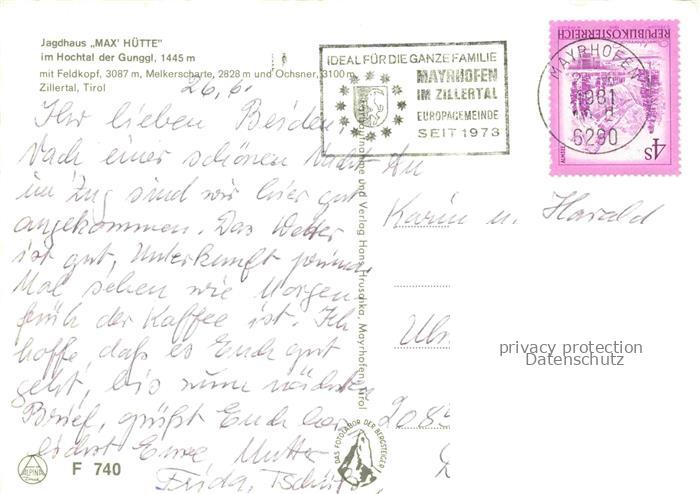 Jagdhaus „MAX' HÜTTE"
im Hochtal der Gunggl, 1445 m
mit Feldkopf, 3087 m, Melkerscharte, 2828 m und Ochsner, 3100 m
Zillertal, Tirol
26.6.
Ihr lieben Beiden,
Nach einer schönen Nacht
im Zug sind wir hier gut
angekommen. Das Wetter
ist gut, Unterkunft prima.
Mal sehen wie Morgen
früh der Kaffee ist. Ich
hoffe, daß es Euch gut
geht, bis zum nächsten
Brief, grüßt Euch herz
lichst Eure Mutter
Frida, Tschüß
ALPINA
F 740
IDEAL FÜR DIE GANZE FAMILIE
MAYRHOFEN
IM ZILLERTAL
EUROPAGEMEINDE
SEIT 1973
MAYRHOFEN
1981
6290
REPUBLIK ÖSTERREICH
4s
und Verlag Hans Hruschka, Mayrhofen, Tirol
DAS FOTOLABOR DER BERGSTEIGER
An
Karin u. Harald
Ulm
208
privacy protection
Datenschutz